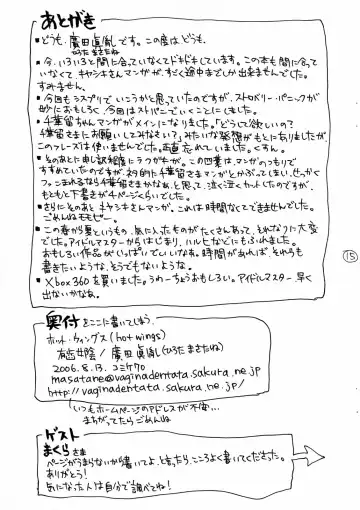 あとがき
・どうも、廣田眞胤です。この度はどうも。
ひろた まさたね
・今、いろいろと間に合っていなくてドキドキしています。この本も間に合って
いなくて、キャシキさんマンガが、すごく途中までしか出来ませんでした。
すみません。
・今回もシスプリでいこうかと思っていたのですが、ストロベリー・パニックが
妙におもしろく、今回はストパニでいくことにしました。
・千華留ちゃんマンガがメインになりました。「どうして欲しいの?
千華留さまにお願いしてみなさい?」みたいな発想がもとにありましたが
このフレーズは使いませんでした。正直忘れていました。くすん。
・そのあとに申し訳程度に
すすめていたのですが、対的に千華留さまマンガとかぶってしまい、せっかく
なら千華留さまかなぁ、と思って、泣く泣くカットしたのですが、
もともと下書きが4ページくらいでした。
・さらにそのあとキャシキさんマンガ。これは時間なくてできませんでした。
ごめんね
・この春から夏というもの、気に入ったものがたくさんあって、それなりに大変
でした。アイドルマスターからはじまり、ハルヒなどにもふれました。
おもしろい作品がいっぱいでていいなぁ。時間があれば、それらも
書きたいような、そうでもないような。
・Xbox360を買いました。うわーちょうおもしろい。アイドルマスター、早く
出ないかなぁ。
15
奥付をここに書いてしまう。
ホット・ウィングス(hot wings)
廣田眞胤(ひろた まさたね)
2006.8.13. コミケ70
masatane@vaginadentata.sakura.ne.jp
http://vaginadentata.sakura.ne.jp/
いつもホームページのアドレスが不安…
まちがってたらごめんね
ゲスト
まくらさま
ページがうまらないから書いてよ、と言ったら、こころよく書いてくださった。
ありがとう!
気になった人は自分で調べてね!